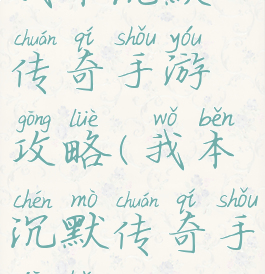 chuán qí shǒu yóu
传奇手游
gōng lüè wǒ běn
攻略(我本
chén mò chuán qí shǒu
沉默传奇手